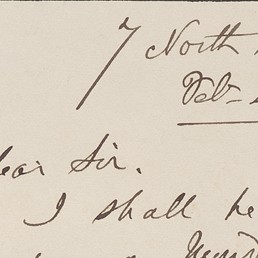 7 North
Feb-
ear Sir.
I shall he